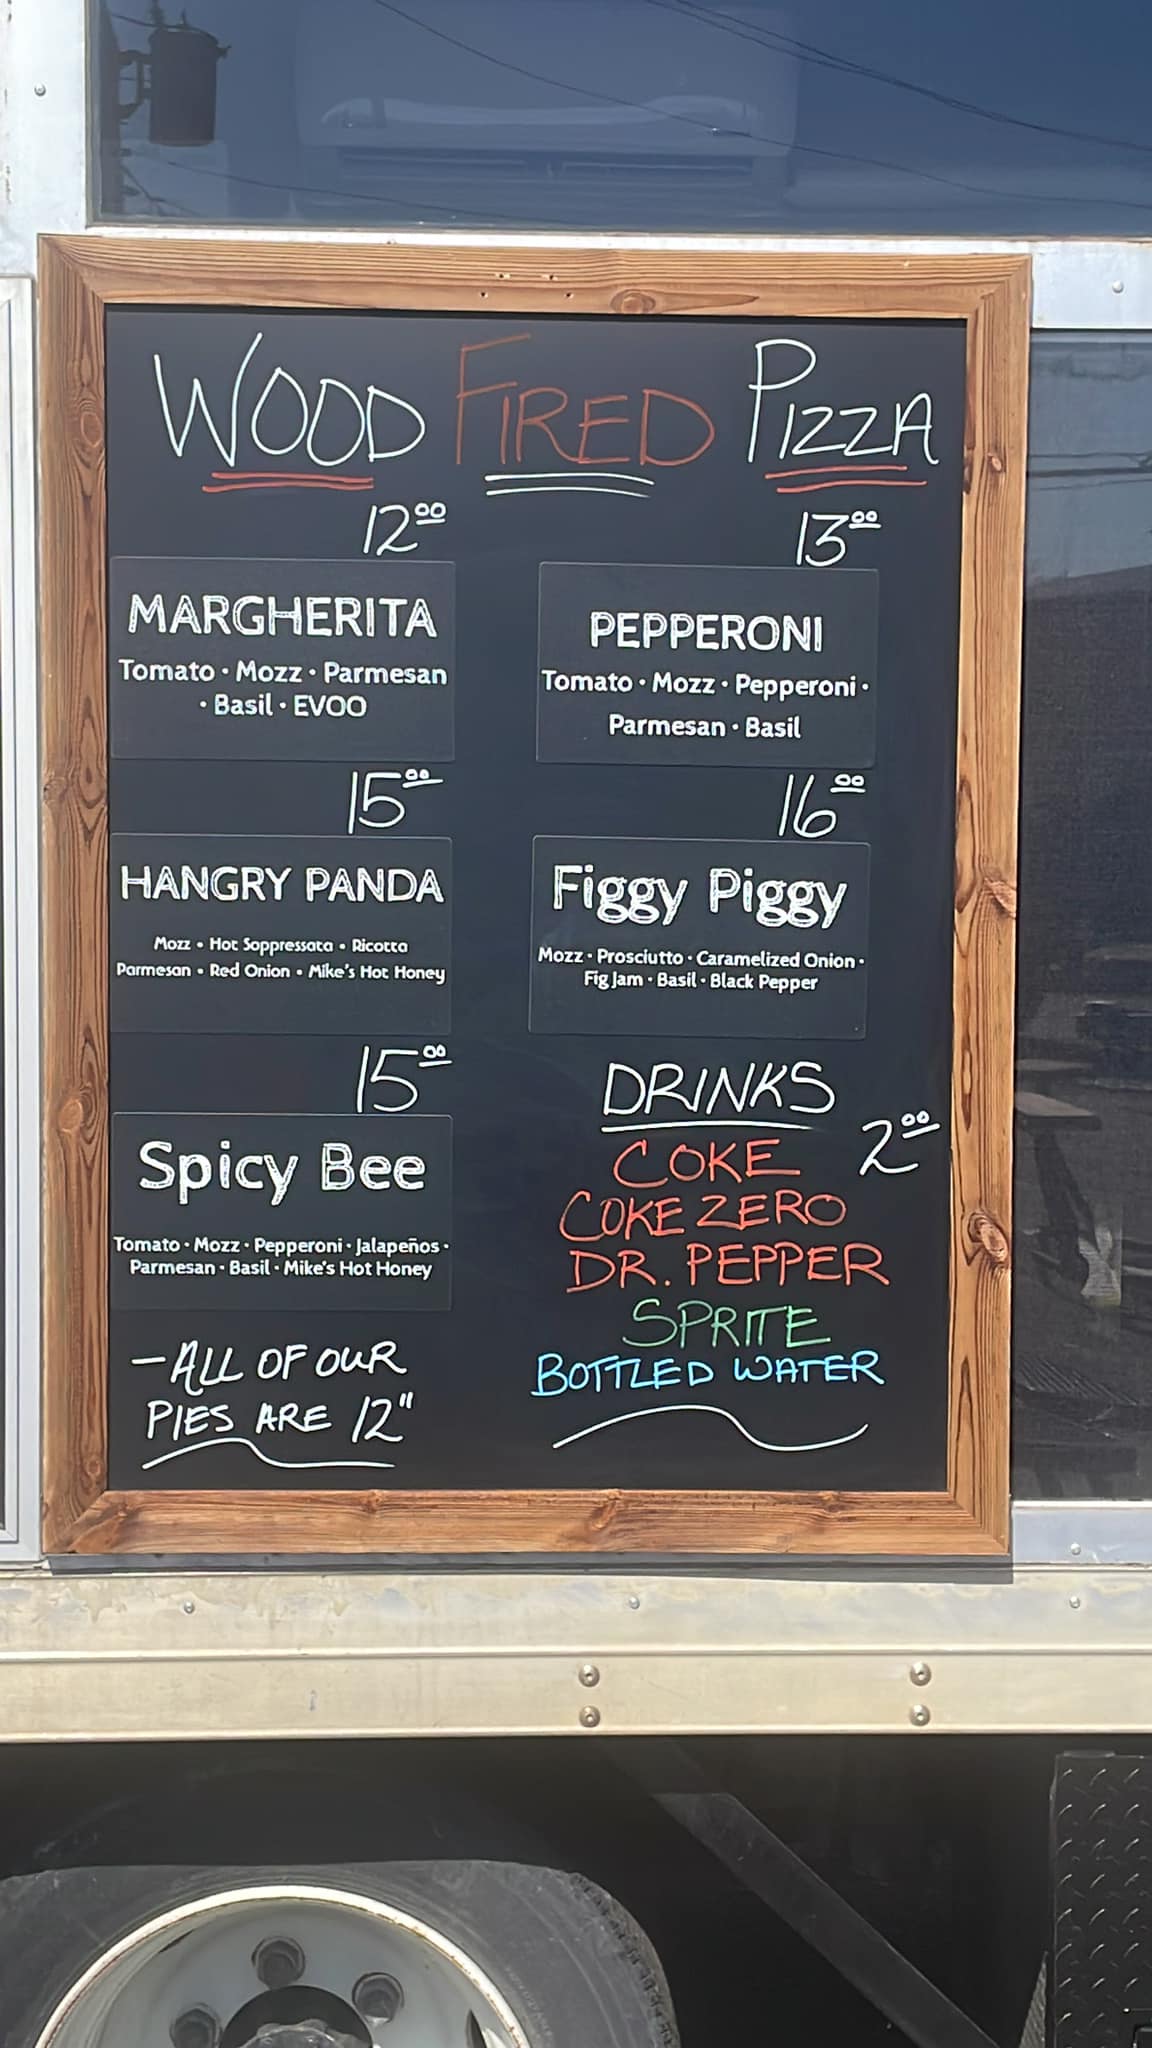 WOOD FIRED PIZZA
12.00
MARGHERITA
Tomato · Mozz · Parmesan
· Basil · EVOO
13.00
PEPPERONI
Tomato · Mozz · Pepperoni ·
Parmesan · Basil
15.00
HANGRY PANDA
Mozz • Hot Soppressata • Ricotta
Parmesan • Red Onion • Mike's Hot Honey
16.00
Figgy Piggy
Mozz · Prosciutto · Caramelized Onion ·
Fig Jam · Basil · Black Pepper
15.00
Spicy Bee
Tomato · Mozz · Pepperoni · Jalapeños ·
Parmesan · Basil · Mike's Hot Honey
-ALL OF OUR
PIES ARE 12"
DRINKS
2.00
COKE
COKE ZERO
DR. PEPPER
SPRITE
BOTTLED WATER